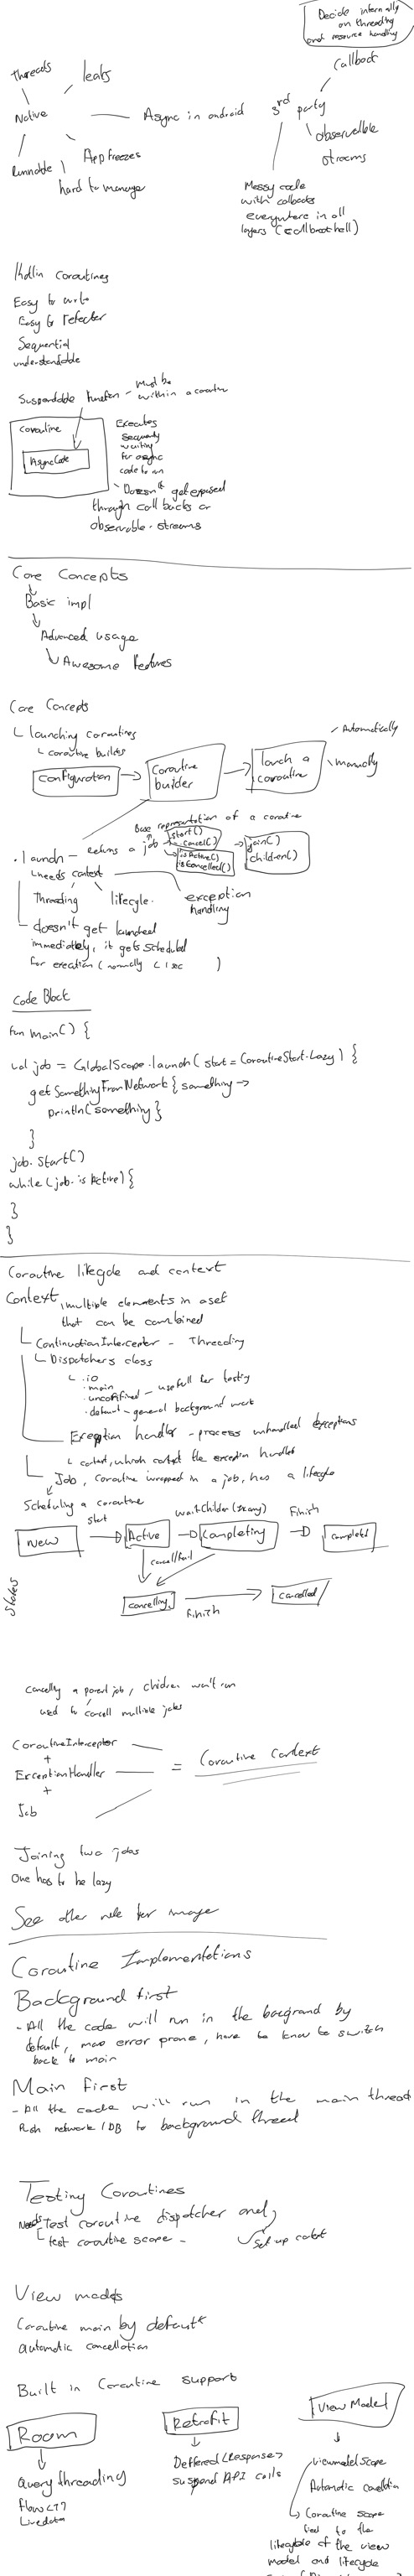 Decide internally
on threading
and resource handling
callback
threads
leaks
Native
Async in android
3rd party
Runnable
App freezes
hard to manage
observable
streams
Messy code
with callbacks
everywhere in all
layers (callback hell)
Kotlin coroutines
Easy to write
Easy to refactor
Sequential
understandable
Suspendable function - must be
within a coroutine
coroutine
Async Code
Executes
waiting
for async
code to run
Doesn't get exposed
through callbacks or
observable streams
Core Concepts
Basic impl
Advanced usage
Awesome features
Core Concepts
launching coroutines
coroutine builder
Configuration
Coroutine
builder
launch a
coroutine
Automatically
manually
base representation of a coroutine
.launch - returns a job
start()
cancel()
isActive()
isCancelled()
join()
children()
needs context
threading
lifecycle
exception
handling
doesn't get launched
immediately, it gets scheduled
for execution (normally < 1 sec )
Code Block
fun main() {
val job = GlobalScope.launch( start = CoroutineStart.Lazy) {
getSomethingFromNetwork { something ->
println(something }
}
job.start()
while (job.isActive) {
}
}
Coroutine lifecycle and context
Context, multiple elements in a set
that can be combined
ContinuationInterceptor - Threading
Dispatchers class
.io
.main
.unconfined - usefull for testing
.default - general background work
Exception handler - process unhandled exceptions
Job, coroutine wrapped in a job, has a lifecycle
Scheduling a coroutine
States
New
start
Active
wait Children (if any)
Completing
Finish
completed
cancel/fail
cancelling
Finish
cancelled
cancelling a parent job, children won't run
used to cancell multiple jobs
CoroutineInterceptor
+
ExceptionHandler
+
Job
= Coroutine Context
Joining two jobs
One has to be lazy
See other note for image
Coroutine Implementations
Background first
- All the code will run in the background by
default, more error prone, have to know to switch
back to main
Main first
- All the code will run in the main thread
Push network / DB to background thread
Testing Coroutines
Needs test coroutine dispatcher and
test coroutine scope -
Set up
View models
Coroutine main by default
automatic cancellation
Built in Coroutine support
Room
Query threading
Flow<T>
Livedata
Retrofit
Deffered<Response>
suspend API calls
ViewModel
viewmodel scope
Automatic cancellation
Coroutine scope
tied to the
lifecycle of the view
model and lifecycle